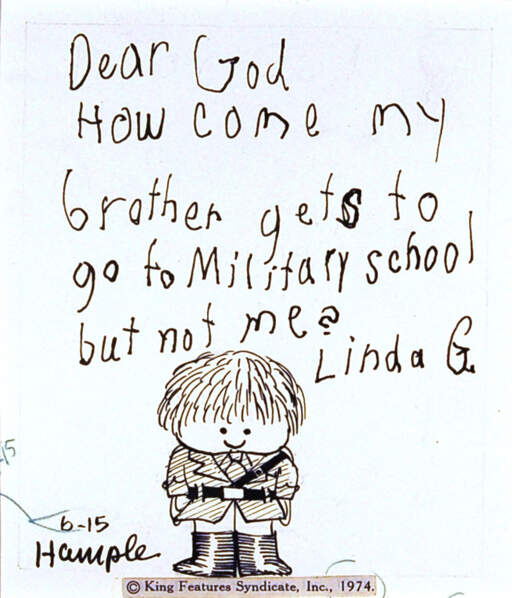 Dear God
How come my
brother gets to
go to Military school
but not me?
Linda G.
6-15
Hample
© King Features Syndicate, Inc., 1974.